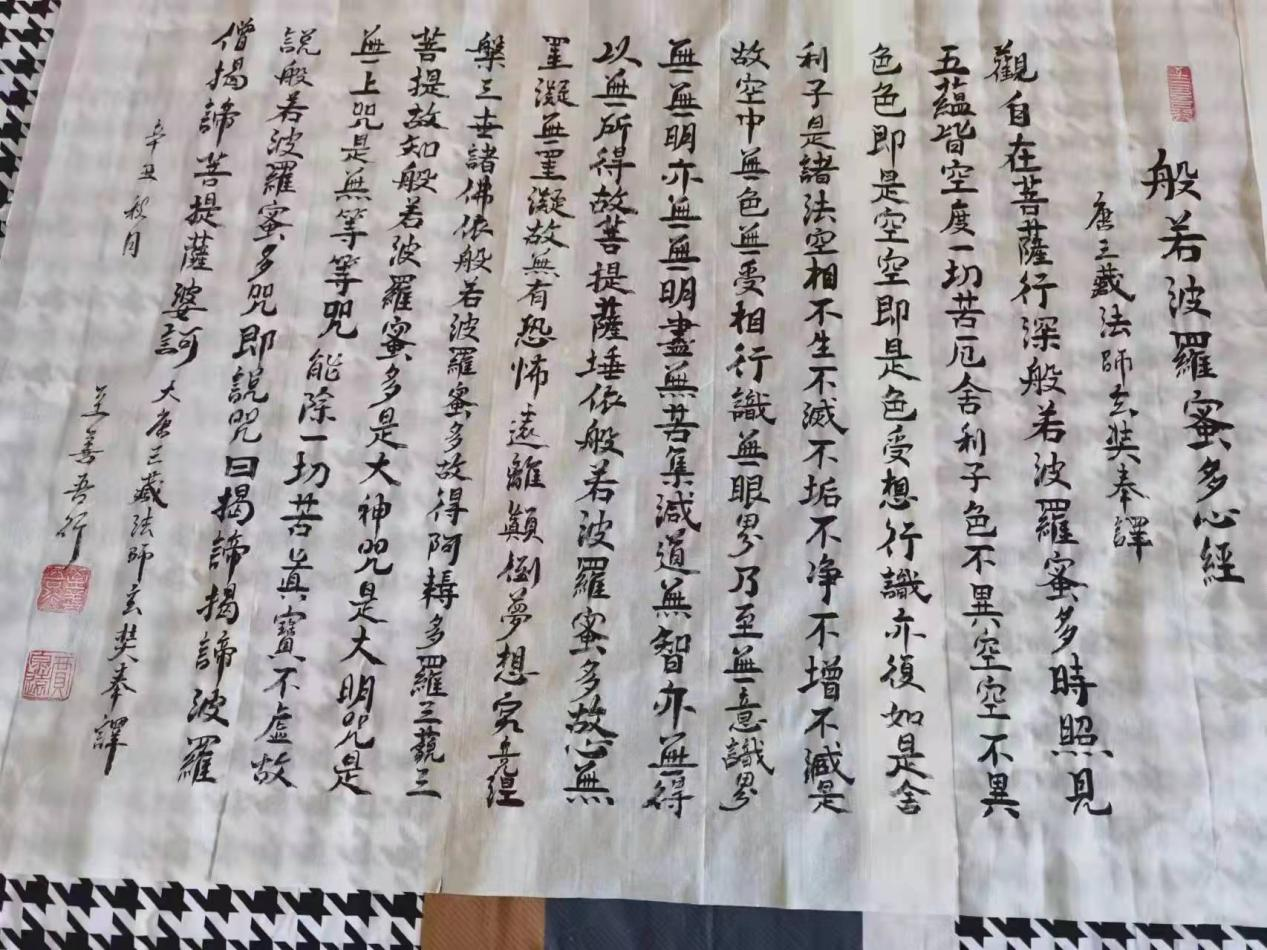 般若波羅蜜多心經
唐三藏法師玄奘奉譯
觀自在菩薩行深般若波羅蜜多時照見
五蘊皆空度一切苦厄舍利子色不異空空不異
色色即是空空即是色受想行識亦復如是舍
利子是諸法空相不生不滅不垢不净不增不減是
故空中無色無受相行識無眼界乃至無意識界
無無明亦無無明盡無苦集滅道無智亦無得
以無所得故菩提薩埵依般若波羅蜜多故心無
罣凝無罣凝故無有恐怖遠離顛倒夢想究竟涅
槃三世諸佛依般若波羅蜜多故得阿耨多羅三藐三
菩提故知般若波羅蜜多是大神咒是大明咒是
無上咒是無等等咒能除一切苦真寶不虛故
說般若波羅蜜多咒即說咒曰揭諦揭諦波羅
僧揭諦菩提薩婆訶 大唐三藏法師玄奘奉譯
辛丑秋月 善吾行